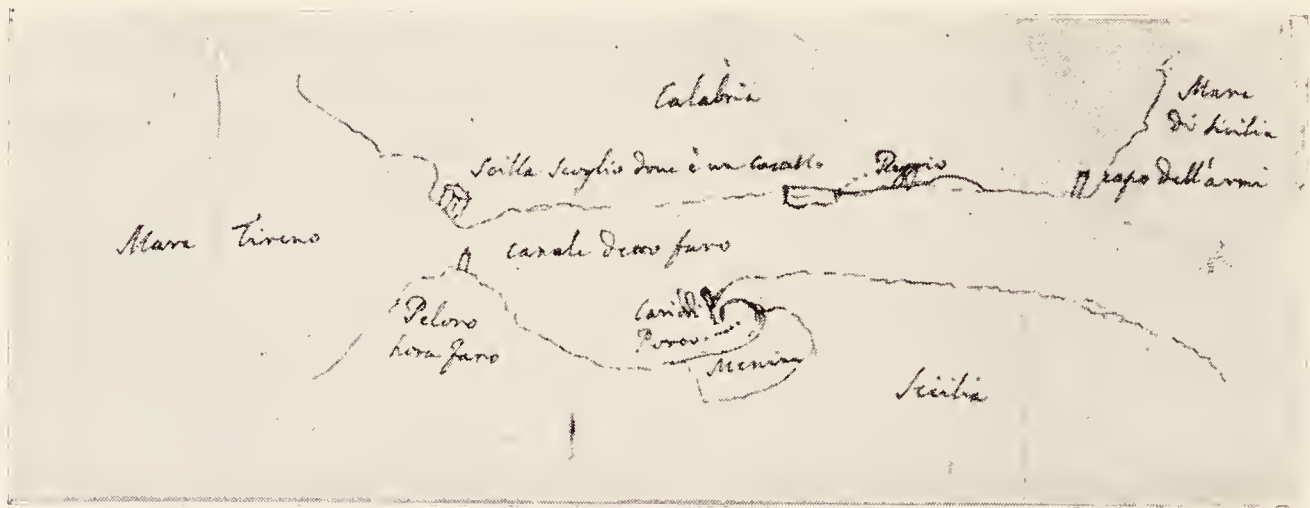 Calabria
Mare
di Sicilia
Scilla scoglio dove è un casale
Reggio
capo dell'armi
Mare Tireno
canale detto faro
Peloro
hora faro
Caridi
Porto
Messina
Sicilia